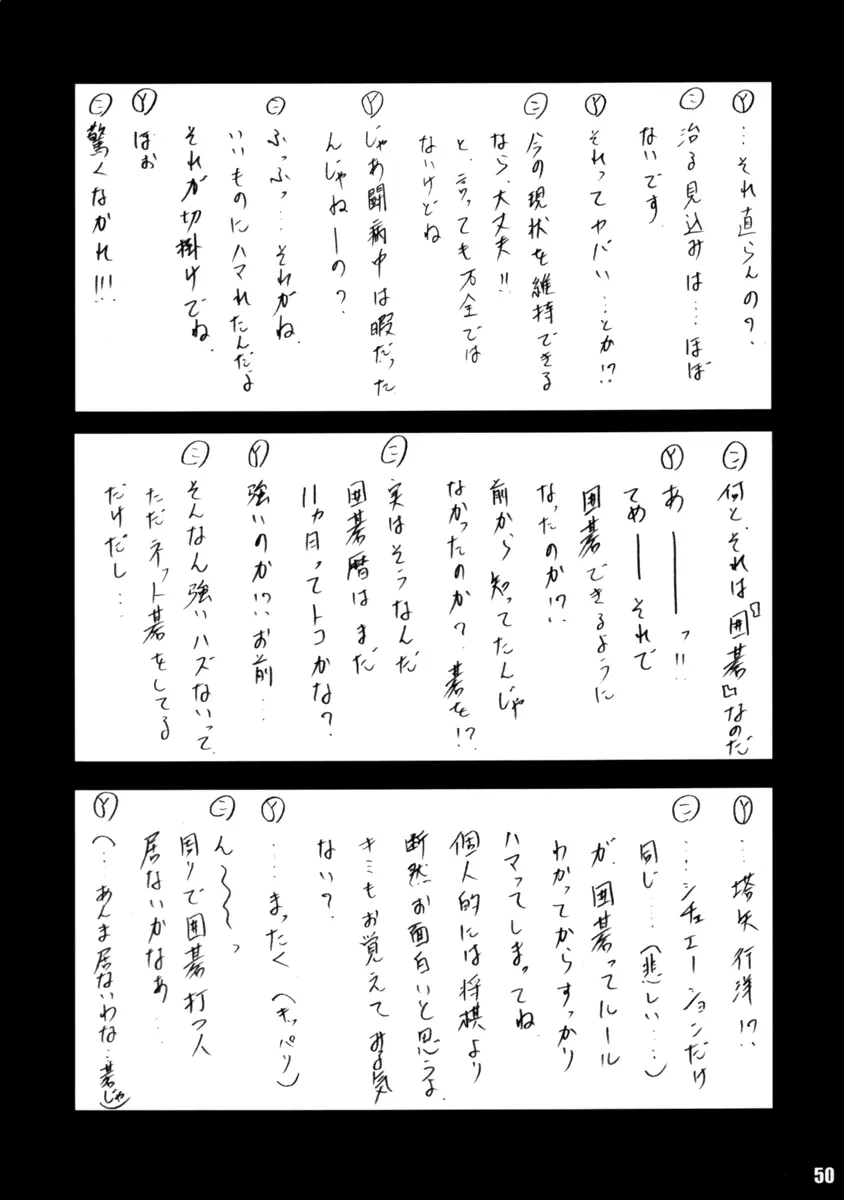 Ⓨ…それ直らんの?
㊁治る見込みは…ほぼ
ないです。
Ⓨそれってヤバい…とか!?
㊁今の現状を維持できる
なら、大丈夫!!
と、言っても万全では
ないけどね
Ⓨじゃあ闘病中は暇だった
んじゃねーの?
㊁ふっふっ…それがね、
いいものにハマれたんだよ
それが切掛けでね。
Ⓨほぉ
㊁驚くなかれ!!!
㊁何と、それは『囲碁』なのだ
Ⓨあーーっ!!
てめーーそれで
囲碁できるように
なったのか!?
前から知ってたんじゃ
なかったのか?碁を!?
㊁実はそうなんだ
囲碁暦はまだ
11ヵ月ってトコかな?
Ⓨ強いのか!?お前…
㊁そんなん強いハズないって。
ただネット碁をしてる
だけだし…
Ⓨ…塔矢行洋!?
㊁……シチュエーションだけ
同じ……(悲しい……)
が、囲碁ってルール
わかってからすっかり
ハマってしまってね。
個人的には将棋より
断然お面白いと思うよ。
キミもお覚えてみる気
ない?
Ⓨ……まったく(キッパリ)
㊁ん〜〜〜っ
周りで囲碁打つ人
居ないかなあ…
Ⓨ(…あんま居ないわな…碁じゃ)
50